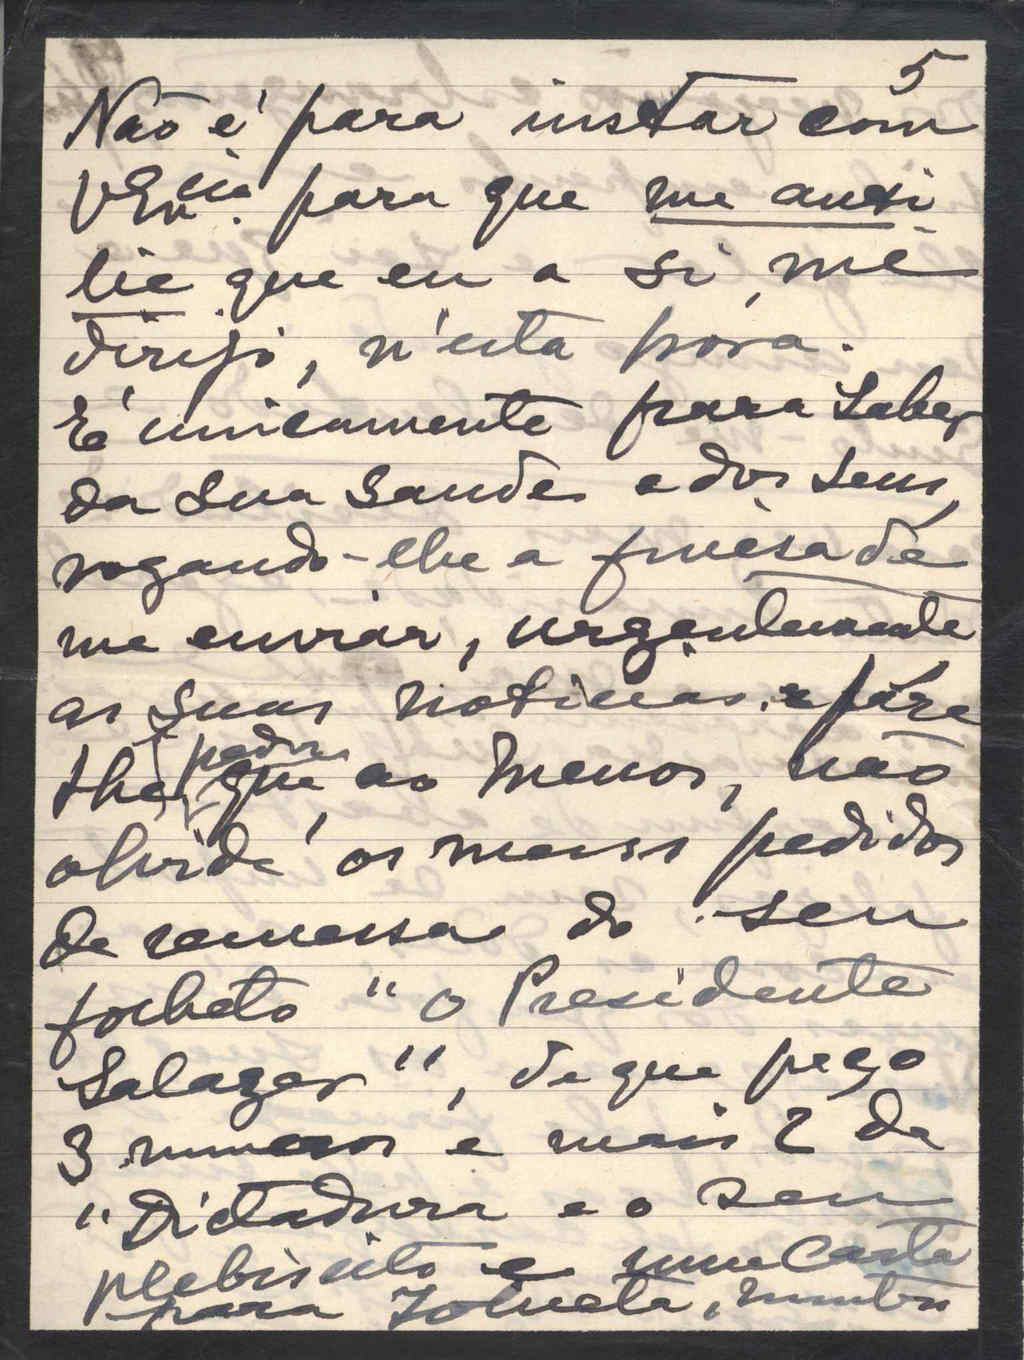 5
Não é para instar com
V Ex.cia para que me auxi
lie que eu a si, me
dirijo, n'esta hora.
É unicamente para saber
da sua saude e dos seus,
rogando-lhe a finesa de
me enviar, urgentemente
as suas noticias, e
lhe pedir
que, ao menos, não
olvide os meus pedidos
de remessa do seu
folheto "O Presidente
Salazar", de que peço
3 numeros e mais 2 da
"Dictadura e o seu
plebiscito e uma Carta
para